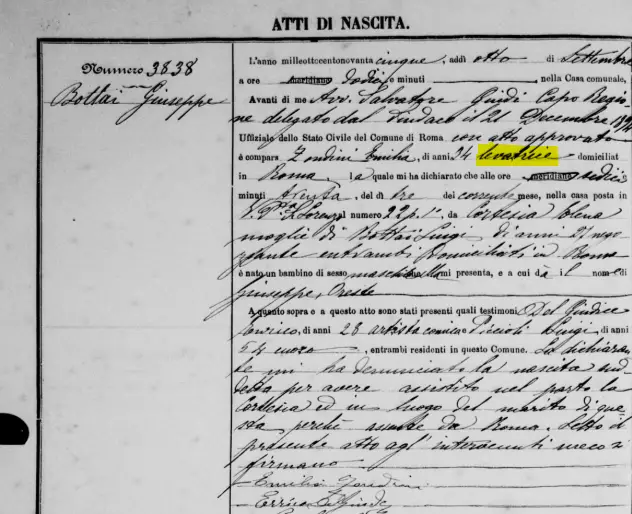 ATTI DI NASCITA.
Numero 3838
Bottai Giuseppe
L'anno millottocentonovanta cinque, addì otto di Settembre
a ore meridiane dodici e minuti , nella Casa comunale,
Avanti di me Avv. Salvatore Guidi Capo Regio
ne delegato dal Sindaco il 21 Decembre 1894
Uffiziale dello Stato Civile del Comune di Roma con atto approvato
è comparsa Zondini Emilia, di anni 34 levatrice domiciliat
in Roma, la quale mi ha dichiarato che alle ore meridiane sedici
minuti trenta, del dì tre del corrente mese, nella casa posta in
Lorenzo al numero 22 p. 1°, da Cortesia Elena
moglie di Bottai Luigi di anni nego
ziante entrambi domiciliati in Roma
è nato un bambino di sesso maschile che mi presenta, e a cui dà il nome di
Giuseppe, Oreste
A quanto sopra e a questo atto sono stati presenti quali testimoni Del Giudice
Enrico, di anni 28 artista comico e Piccioli Luigi, di anni
54 cuoco, entrambi residenti in questo Comune. La dichiaran
te mi ha denunciato la nascita sud
detta per avere assistito nel parto la
Cortesia ed in luogo del marito di que
sta perché assente da Roma. Letto il
presente atto agl' intervenuti meco si
firmano
- Emilia Zondini
- Errico Del Giudice